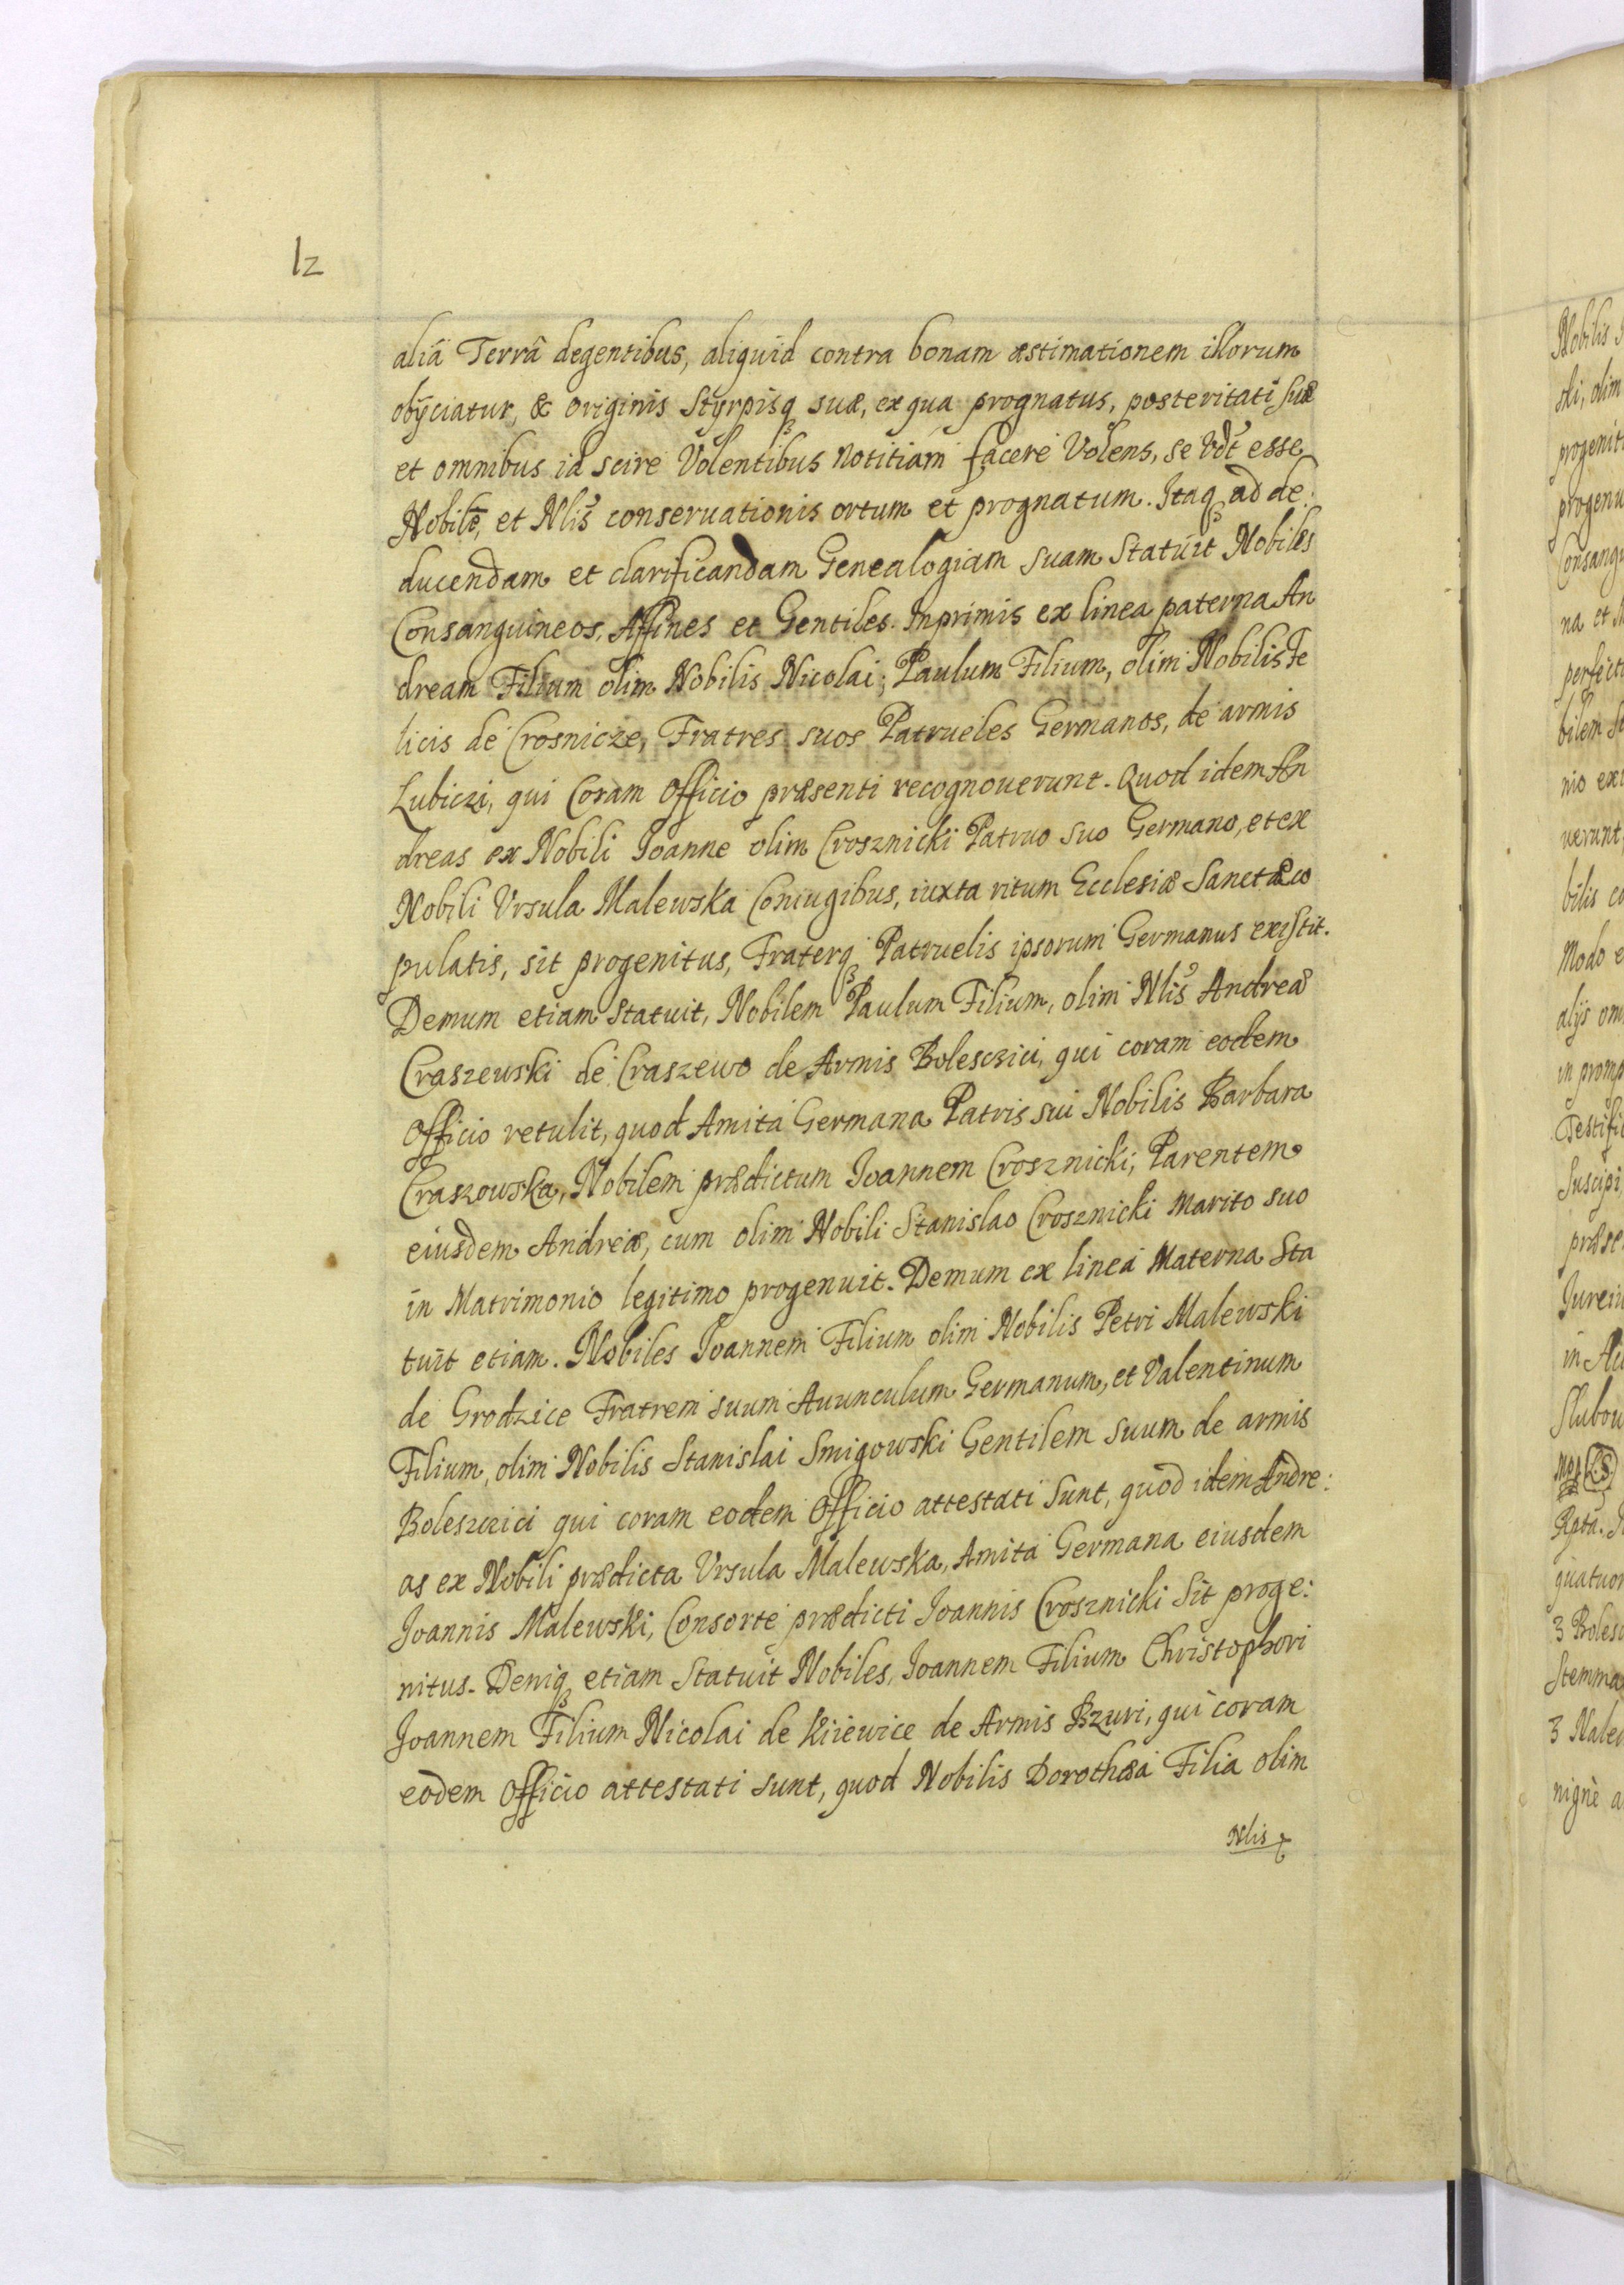 12
aliâ Terrâ degentibus, aliquid contra bonam æstimationem illorum
obÿciatur, & originis Styrpisq suæ, ex qua prognatus, posteritati suæ
et omnibus id scire Volentibus notitiam facere Volens, se Vdt esse
Nobile, et Nlis conseruationis ortum et prognatum. Itaq ad de:
ducendam et clarificandam Genealogiam suam Statuit Nobiles
Consanguineos, Affines et Gentiles. Inprimis ex linea paterna An
dream Filium olim Nobilis Nicolai; Paulum Filium, olim Nobilis Fe
licis de Crosnicze, Fratres suos Patrueles Germanos, de armis
Lubiczi, qui Coram Officio præsenti recognouerunt. Quod idem An
dreas ex Nobili Ioanne olim Crosznicki Patruo suo Germano, et ex
Nobili Vrsula Malewska Coniugibus, iuxta ritum Ecclesiæ Sanctæ co
pulatis, sit progenitus, Fraterq Patruelis ipsorum Germanus existit.
Demum etiam Statuit, Nobilem Paulum Filium, olim Nlis Andreæ
Craszewski de Craszewo de Armis Bolesczici, qui coram eodem
Officio retulit, quod Amita Germana Patris sui Nobilis Barbara
Craszowska, Nobilem prædictum Ioannem Crosznicki, Parentem
eiusdem Andreæ, cum olim Nobili Stanislao Crosznicki Marito suo
in Matrimonio legitimo progenuit. Demum ex linea Materna Sta
tuit etiam. Nobiles Ioannem Filium olim Nobilis Petri Malewski
de Grodzice Fratrem suum Auunculum Germanum, et Valentinum
Filium, olim Nobilis Stanislai Smigowski Gentilem suum de armis
Boleszczici qui coram eodem Officio attestati Sunt, quod idem Andre:
as ex Nobili prædicta Vrsula Malewska, Amita Germana eiusdem
Ioannis Malewski, Consorte prædicti Ioannis Crosznicki Sit proge:
nitus. Deniq etiam Statuit Nobiles, Ioannem Filium Christophori
Ioannem Filium Nicolai de Kiiewice de Armis Bzuri, qui coram
eodem Officio attestati sunt, quod Nobilis Dorothæa Filia olim
Nlis